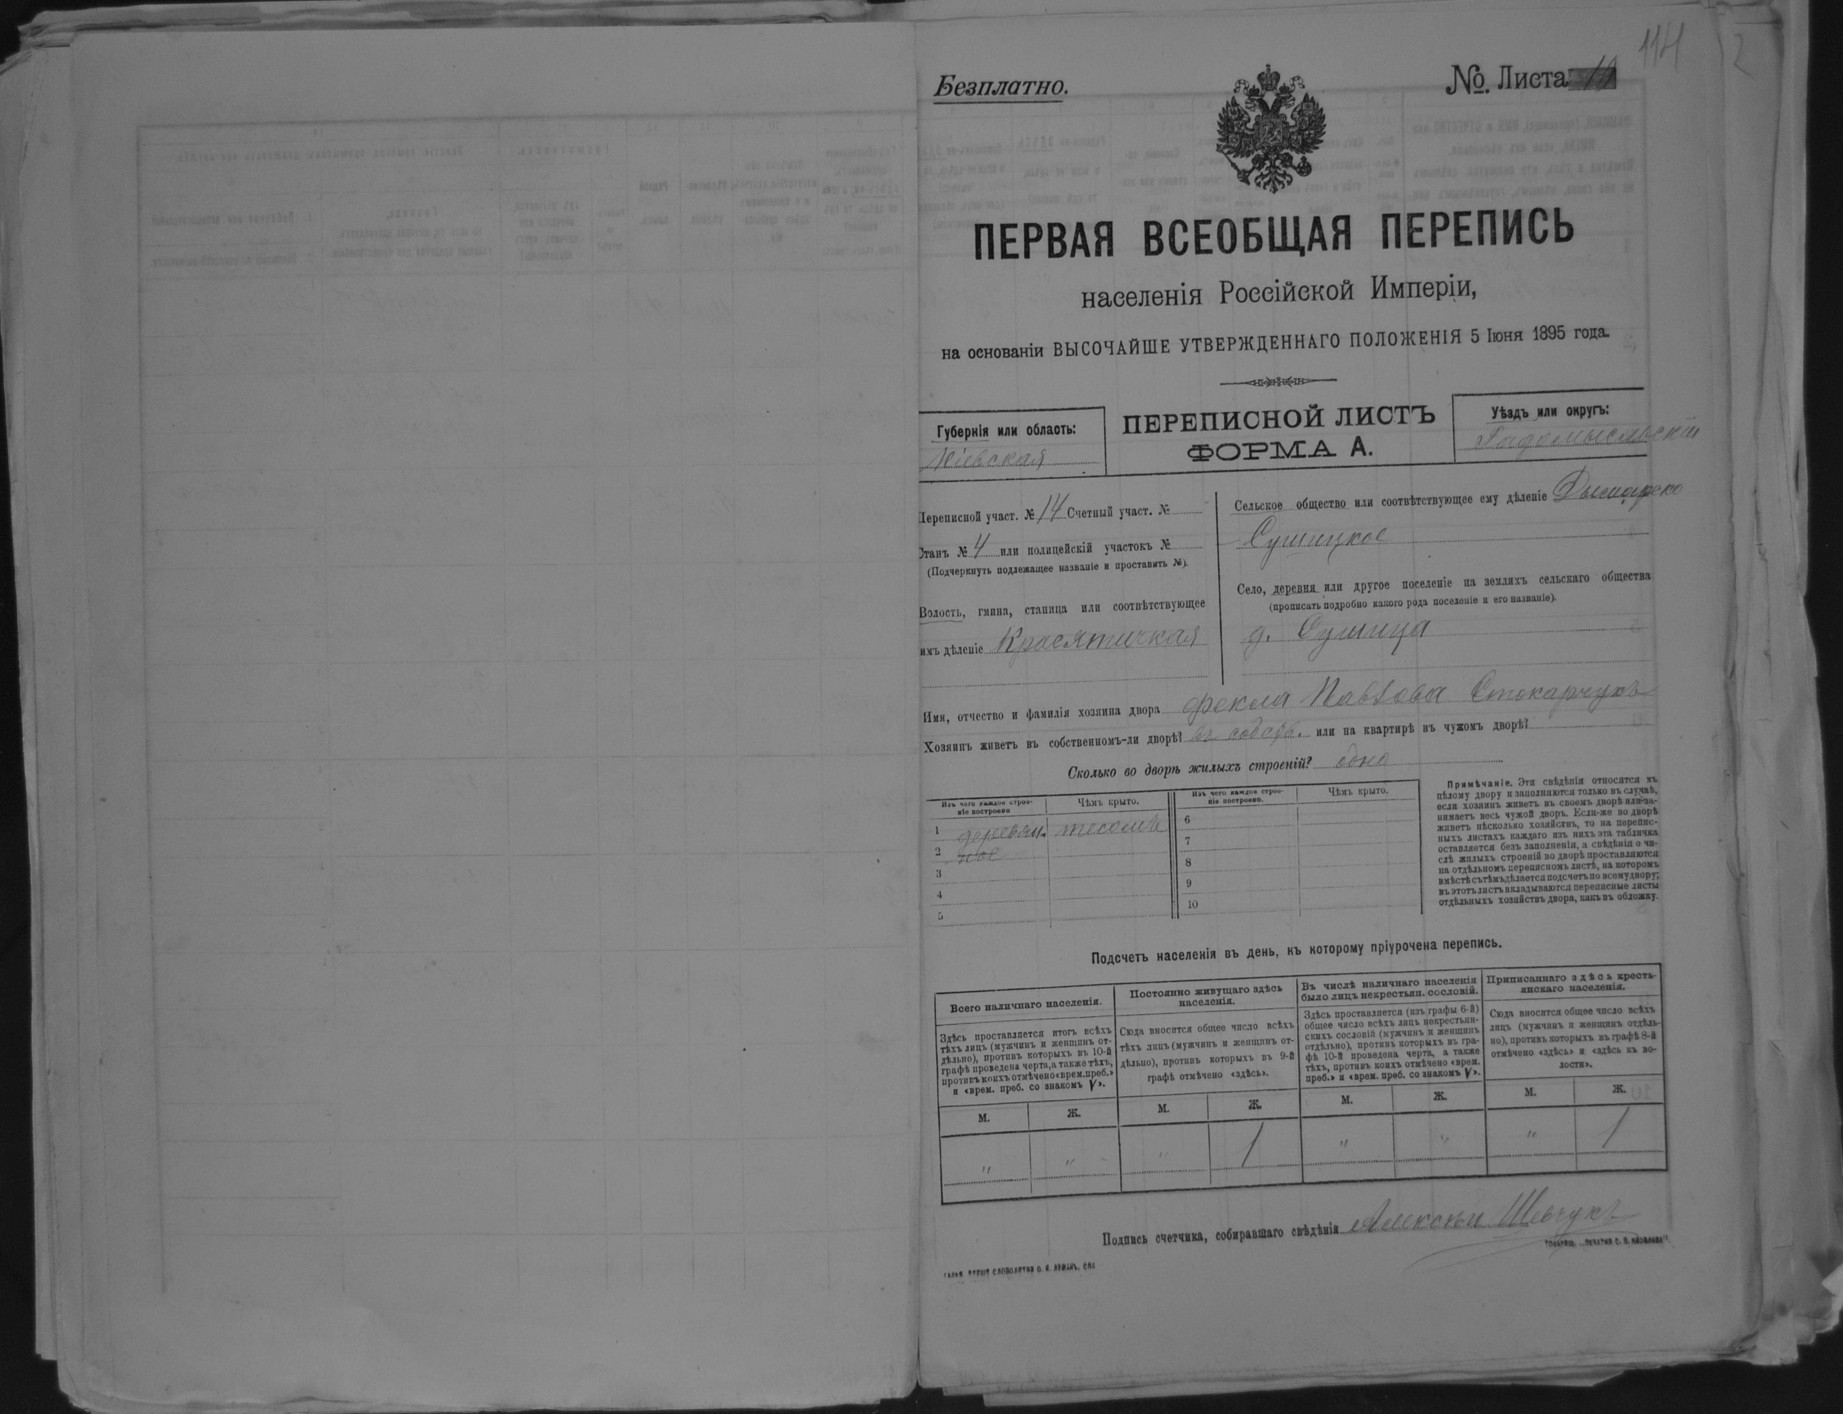 114
2
Безплатно.
№ Листа
ПЕРВАЯ ВСЕОБЩАЯ ПЕРЕПИСЬ
населенія Россійской Имперіи,
на основаніи ВЫСОЧАЙШЕ УТВЕРЖДЕННАГО ПОЛОЖЕНІЯ 5 Іюня 1895 года.
Губернія или область:
Кіевская
ПЕРЕПИСНОЙ ЛИСТЪ
ФОРМА А.
Уѣздъ или округъ:
Радомысльскій
Переписной участ. № 14 Счетный участ. №
Станъ № 4 или полицейскій участокъ №
(Подчеркнуть подлежащее названіе и проставить №).
Волость, гмина, станица или соотвѣтствующее
имъ дѣленіе Красятичская
Сельское общество или соотвѣтствующее ему дѣленіе
Сушицкое
Село, деревня или другое поселеніе на земляхъ сельскаго общества
(прописать подробно какого рода поселеніе и его названіе).
д. Сушица
Имя, отчество и фамилія хозяина двора Фекла Павлова Стокарчукъ
Хозяинъ живетъ въ собственномъ-ли дворѣ? въ собств. или на квартирѣ въ чужомъ дворѣ?
Сколько во дворѣ жилыхъ строеній? одно
Изъ чего каждое строеніе построено
Чѣмъ крыто.
Изъ чего каждое строеніе построено.
Чѣмъ крыто.
1 деревян. тесомъ
2 ное
3
4
5
6
7
8
9
10
Примѣчаніе. Эти свѣдѣнія относятся къ
цѣлому двору и заполняются только въ случаѣ,
если хозяинъ живетъ въ своемъ дворѣ или за-
нимаетъ весь чужой дворъ. Если-же во дворѣ
живетъ нѣсколько хозяйствъ, то на перепис-
ныхъ листахъ каждаго изъ нихъ эта табличка
оставляется безъ заполненія, а свѣдѣнія о чи-
слѣ жилыхъ строеній во дворѣ проставляются
на отдѣльномъ переписномъ листѣ, на которомъ
вмѣстѣ съ тѣмъ дѣлается подсчетъ по всему двору;
въ этотъ листъ вкладываются переписные листы
отдѣльныхъ хозяйствъ двора, какъ въ обложку.
Подсчетъ населенія въ день, къ которому пріурочена перепись.
Всего наличнаго населенія.
Здѣсь проставляется итогъ всѣхъ
тѣхъ лицъ (мужчинъ и женщинъ от-
дѣльно), противъ которыхъ въ 10-й
графѣ проведена черта, а также тѣхъ,
противъ коихъ отмѣчено «врем. преб.»
и «врем. преб. со знакомъ V».
Постоянно живущаго здѣсь
населенія.
Сюда вносится общее число всѣхъ
тѣхъ лицъ (мужчинъ и женщинъ от-
дѣльно), противъ которыхъ въ 9-й
графѣ отмѣчено «здѣсь».
Въ числѣ наличнаго населенія
было лицъ некрестьян. сословій.
Здѣсь проставляется (изъ графы 6-й)
общее число всѣхъ лицъ некрестьян-
скихъ сословій (мужчинъ и женщинъ
отдѣльно), противъ которыхъ въ гра-
фѣ 10-й проведена черта, а также
тѣхъ, противъ коихъ отмѣчено «врем.
преб.» и «врем. преб. со знакомъ V».
Приписаннаго здѣсь кресть-
янскаго населенія.
Сюда вносится общее число всѣхъ
лицъ (мужчинъ и женщинъ отдѣль-
но), противъ которыхъ въ графѣ 8-й
отмѣчено «здѣсь» и «здѣсь въ во-
лости».
М. Ж. М. Ж. М. Ж. М. Ж.
" " " 1 " " " 1
Подпись счетчика, собиравшаго свѣдѣнія Алексѣй Шевчукъ